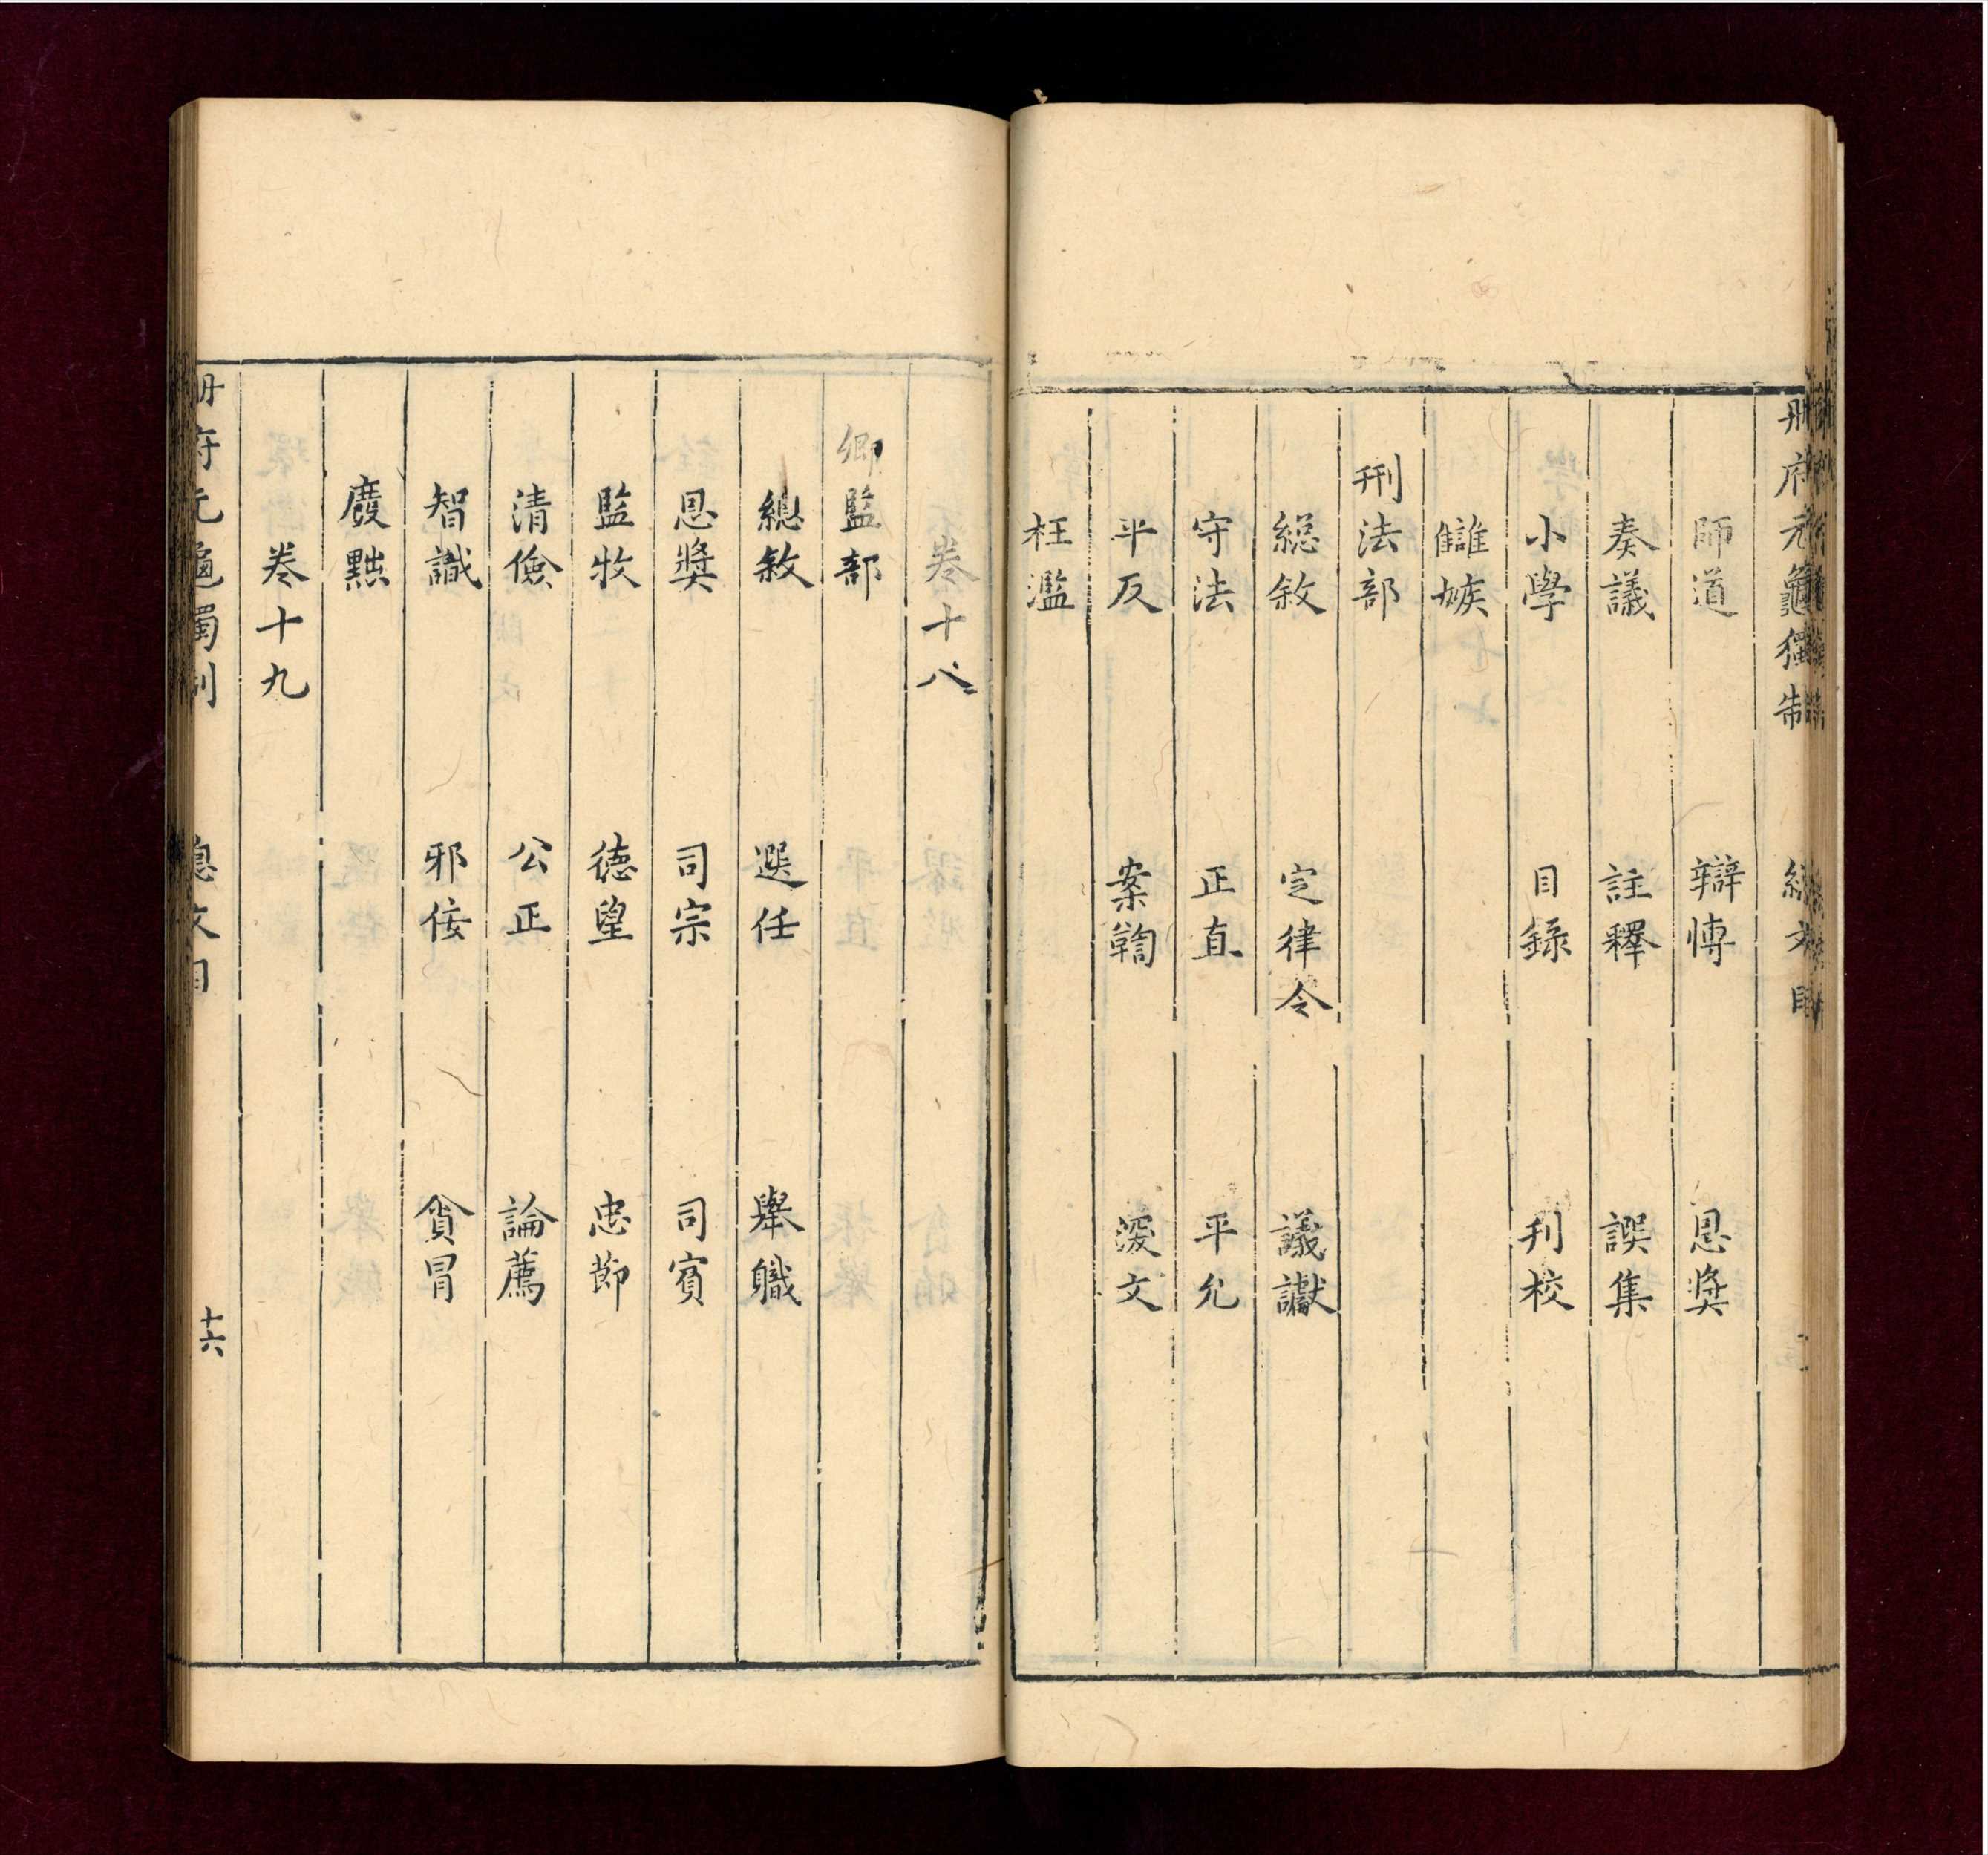 册府元龜獨制 總文目
師道 辯博 恩奬
奏議 註釋 譔集
小學 目錄 刋校
讎嫉
刑法部
総敘 定律令 議讞
守法 正直 平允
平反 案鞫 深文
枉濫
卷十八
卿監部
總敘 選任 舉職
恩奬 司宗 司賓
監牧 德望 忠節
清儉 公正 論薦
智識 邪佞 貪冒
廢黜
卷十九
册府元龜獨制 總文目 十六